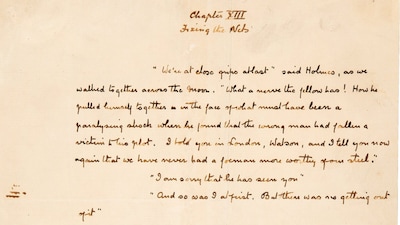 Chapter XIII
Fixing the Nets
"We're at close grips at last" said Holmes, as we
walked together across the moor. "What a nerve the fellow has! How he
pulled himself together in the face of what must have been a
paralysing shock when he found that the wrong man had fallen a
victim to his plot. I told you in London, Watson, and I tell you now
again that we have never had a foeman more worthy of our steel."
"I am sorry that he has seen you"
"And so was I at first. But there was no getting out
of it"